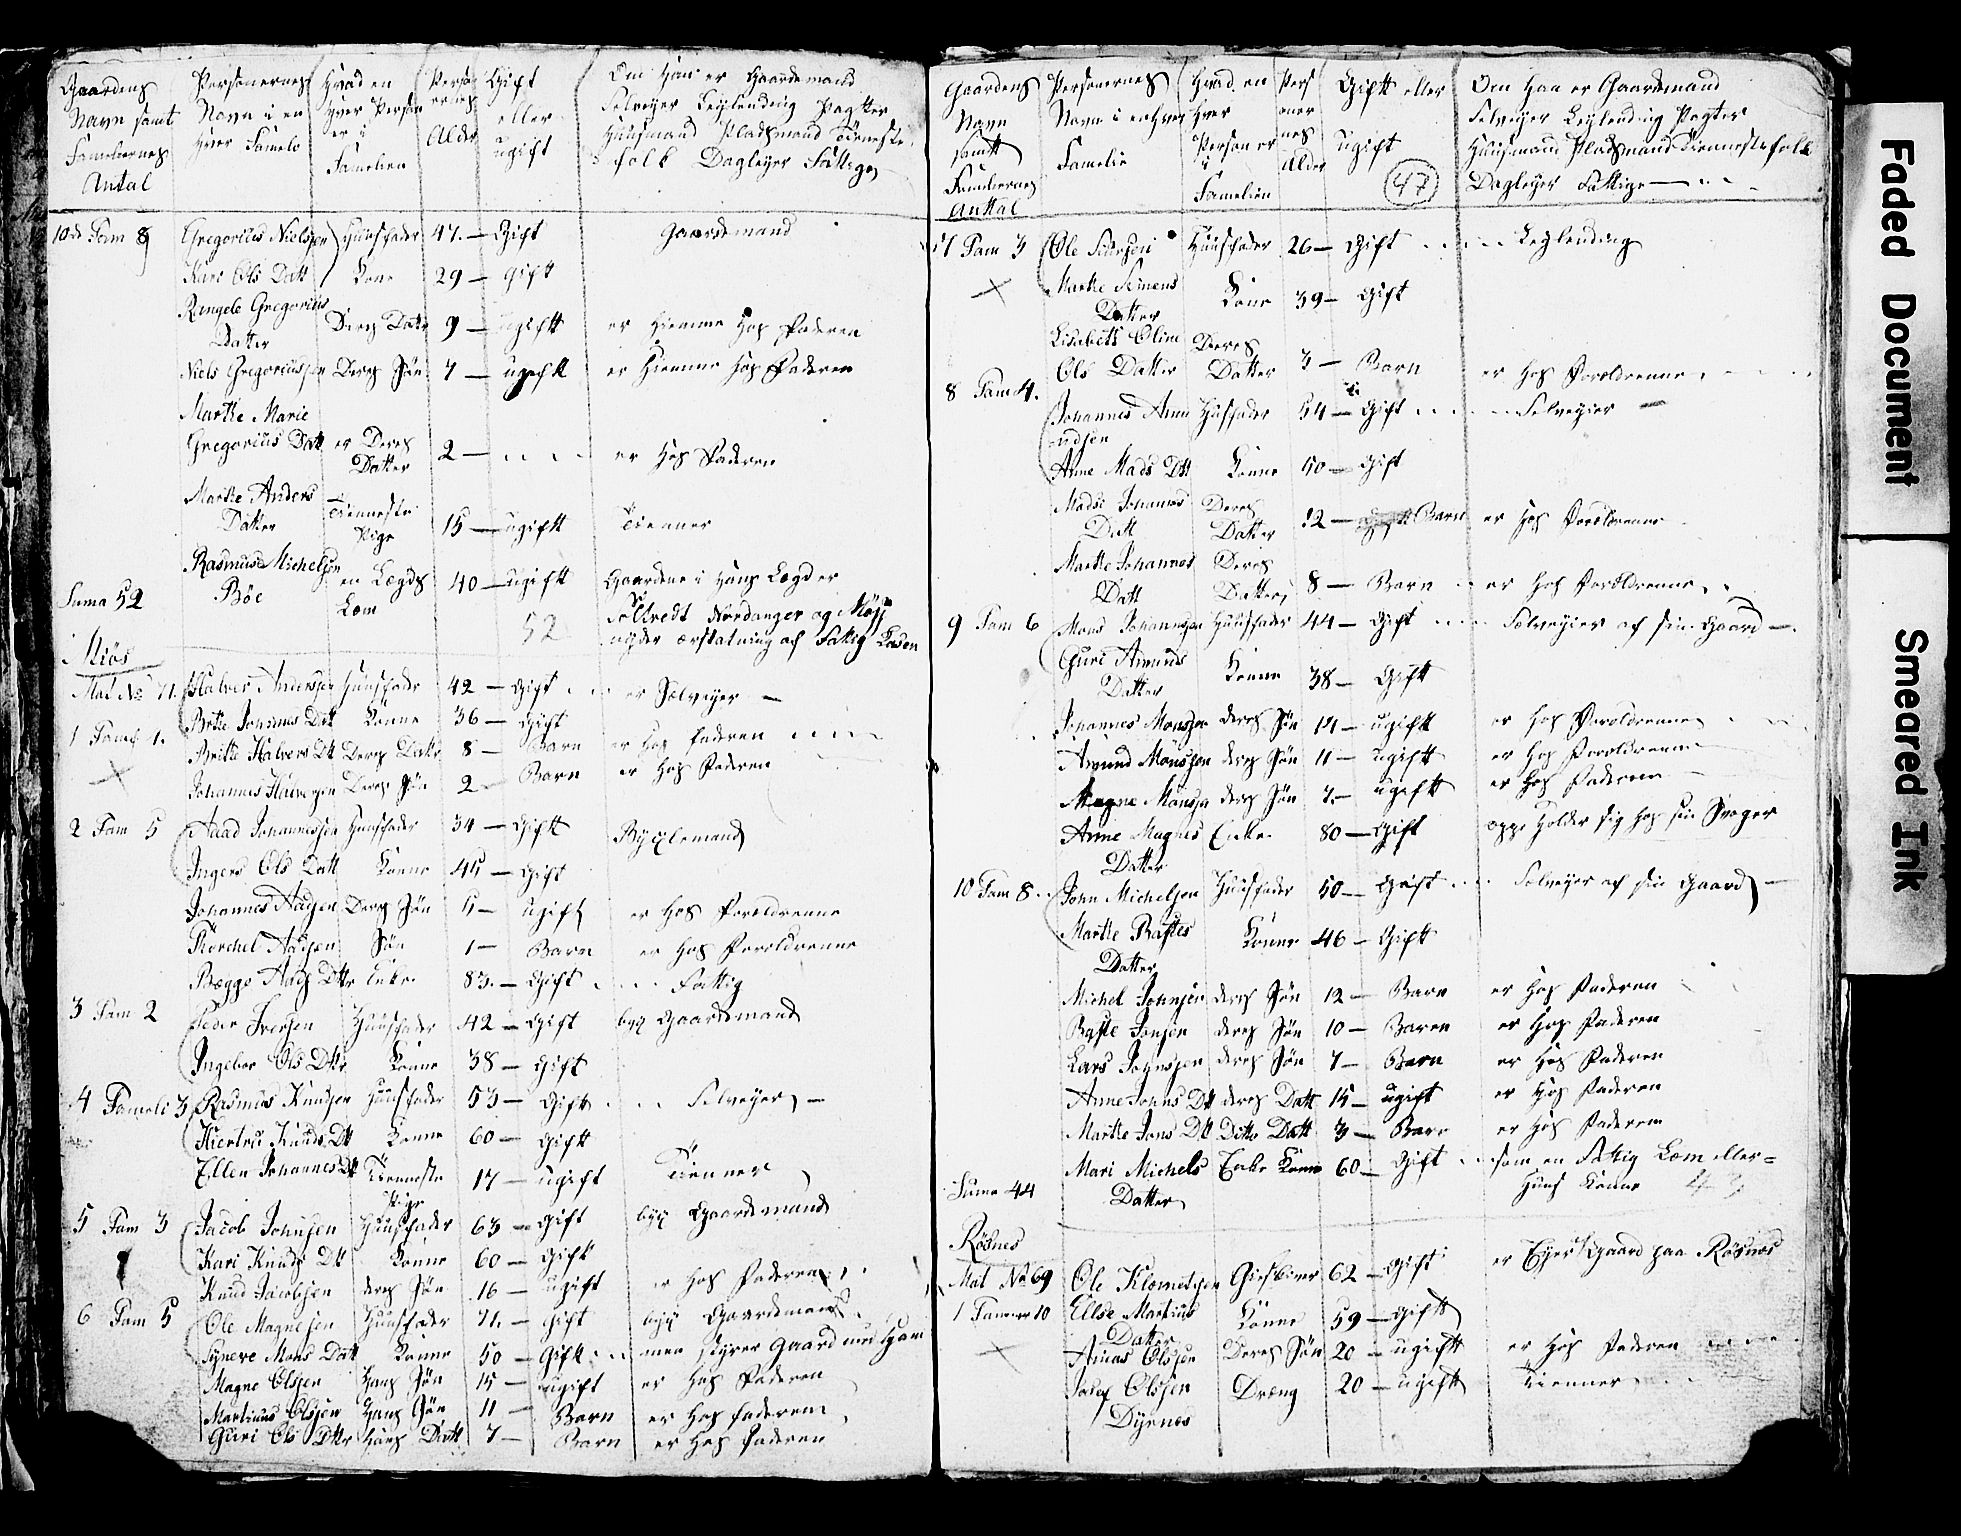 Gaardens Personernes Hvad en Perso Gift Om Han er Gaardemand
Navn samt Navn i en hver Person ernes eller Selveyer Leylending Pagter
Familiernes hver Familie er i Alder ugift Huusmand Pladsmand Tieneste
Antal Familien folk Dagleyer Fattige
10de Fam 8 Gregorius Nielssen Huusfader 47 – Gift Gaardemand
Kari Ols Datt Kone 29 – gift
Ringele Gregorius
Datter Deres Datr 9 – ugift er hiemme hos Faderen
Niels Gregoriussen Deres Søn 7 – ugift er Hiemme hos Faderen
Marthe Marie
Gregorius Datt er Deres Datter 2 – er hos Faderen
Marthe Anders
Datter Tienneste Pige 15 – ugift Tienner
Rasmus Michelsen
Bøe en Lægds Lem 40 – ugift Gaardene i Hans Lægd er
Suma 52
52 Nordanger og Miøs
nyder erstatning af Fattig Kasen
Miøs
Mat No 71. Halver Andersen Huusfader 42 – Gift er Selveyer –
1 Fam 4. Britte Johannes Dtt Konne 36 – Gift
Britte Halvers Dtt Deres Datr 8 – Barn er hos faderen
Johannes Halversen Deres Søn 2 – Barn er hos Faderen
2 Fam 5 Aad Johannessen Huusfader 34 – Gift Byxlemand
Ingers Ols Datt Konne 45 – Gift
Johannes Aadsen Deres Søn 5 – ugift er hos Foreldrenne
Thorchel Aadsen Søn 1 – Barn er hos Foreldrenne
Bægge Aads Dtr Enke 83 – Gift Fattig
3 Fam 2 Peder Iversen Huusfader 42 – Gift byx Gaardemand
Ingebor Ols Dtr Konne 38 – Gift
4 Fameli 3 Rasmus Knudsen Huusfader 53 – Gift Selveyer –
Hiertru Knuds Dtt Konne 60 – Gift
Ellen Johannes Dtt Tienneste Pige 17 – ugift Tienner
5 Fam 3 Jacob Johnsen Huusfader 63 – Gift byx Gaardemand
Kari Knuds Dtt Konne 60 – Gift
Knud Jacobsen deres Søn 16 – ugift er hos Faderen
6 Fam 5 Ole Magnesen Huusfader 71 – Gift byx Gaardemand
Syneve Mons Datt Konne 50 – Gift men styrer Gaard med Ham
Magne Olsen Hans Søn 15 – ugift er hos Faderen
Martinus Olsen Hans Søn 11 – Barn er hos faderen
Guri Ols Dtr Hans Datt 7 – Barn er hos Faderen
Gaardens Personernes Hvad en Pers Gift eller Om Han er Gaardemand
Navn Navn i en hver hver oner ugift Selveyer Leylending Pagter
samt Familie Person er nes Huusmand Pladsmand Tiennestefolk
Familiernes i Alder 47 Dagleyer Fattige
Anttal Familien
7 Fam 3 Ole Iversen Huusfader 26 – Gift Leylending
Marthe Simens
Datter Kone 39 – Gift
Lisebeth Oline
Ols Datter Deres Datter 3 – Barn er hos Foreldrenne
8 Fam 4. Johannes Amu
ndsen Husfader 54 – Gift Selveyier –
Anne Mads Dtt Konne 50 – Gift
Madse Johannes
Datt Deres Datter 12 – Barn er hos Foreldrenne
Marthe Johannes
Datt Deres Datter 8 – Barn er hos Foreldrenne
9 Fam 6 Mons Johannesen Huusfader 44 – Gift Selveyier af sin Gaard –
Guri Amunds
Datter Konne 38 – Gift
Johannes Monssen deres Søn 14 – ugift er hos Foreldrenne
Amund Monssen deres Søn 11 – ugift er hos Foreldrenne
Magne Monssen deres Søn 7 – ugift er hos Faderen
Anne Magnes
Datter Enke 80 – Gift oppe Holder sig hos sin Svoger
10 Fam 8 John Michelsen Huusfader 50 – Gift Selveyer af sin Gaard –
Marthe Rastes
Datter Konne 46 – Gift
Michel Johnsen deres Søn 12 – Barn er hos Faderen
Raste Jonsen deres Søn 10 – Baren er hos Faderen
Lars Johnssen deres Søn 7 – Barn er hos Faderen
Anne Johns Dtt deres Datt 15 – ugift er hos Faderen
Marthe Jons Dtt Ditto Datt 3 – Barn er hos Faderen
Mari Michels
Datter Enke Konne 60 – Gift som en Fattig Lem eller
Huus Konne
Suma 44
43
Røsnes
Mat No 69 Ole Klemetsen Giestgiver 62 – Gift er Eyer Gaard paa Røsnes
1 Famener 10 Ellse Martinus
Datter Konne 59 – Gift
Amas Olssen Deres Søn 20 – ugift er hos Faderen
Josef Olssen
Dyrnes Dreng 20 – ugift Tienner
Faded Document
Smeared Ink